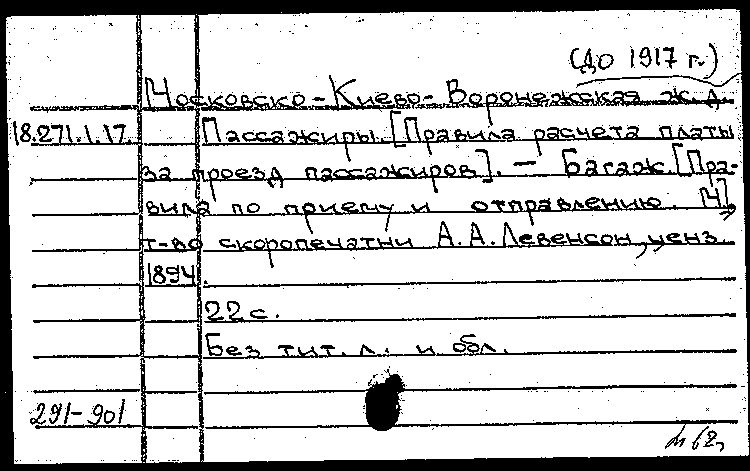 (до 1917 г.)
Московско-Киево-Воронежская ж.д.
18.271.1.17. Пассажиры. [Правила расчета платы
за проезд пассажиров]. — Багаж. [Пра-
вила по приему и отправлению. М],
т-во скоропечатни А.А.Левенсон, ценз.
1894.
22 с.
Без тит. л. и обл.
291-901